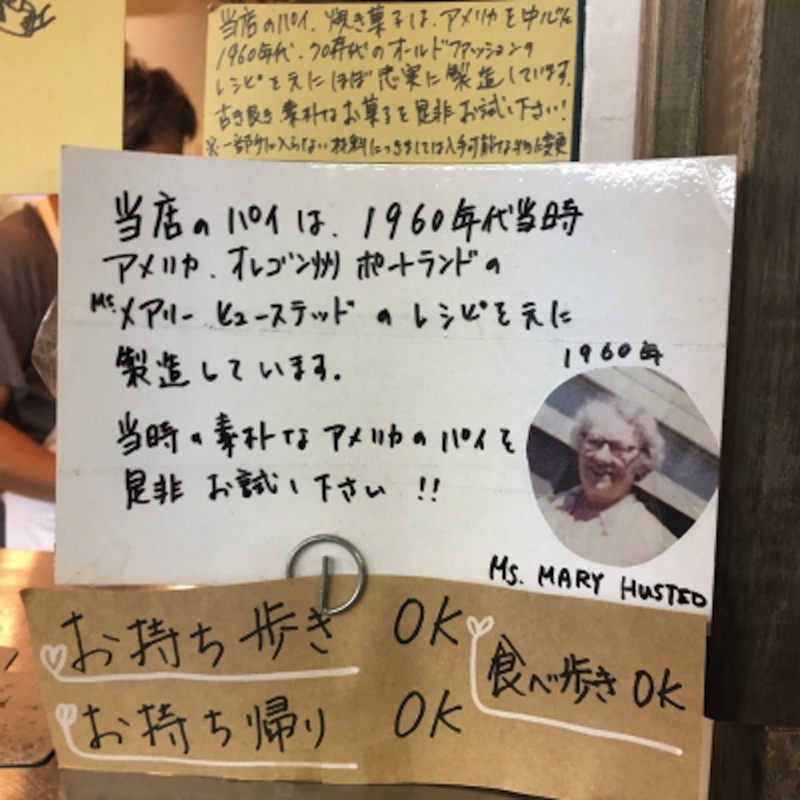 当店のパイ、焼き菓子は、アメリカを中心に
1960年代、70年代のオールドファッションの
レシピを元にほぼ忠実に製造しています。
古き良き素朴なお菓子を是非お試し下さい!
※一部手に入らない材料につきましては入手可能な物に変更
当店のパイは、1960年代当時
アメリカ、オレゴン州ポートランドの
Ms.メアリー ヒューステッドのレシピを元に
製造しています。
1960年
当時の素朴なアメリカのパイを
是非お試し下さい!!
Ms. MARY HUSTED
お持ち歩き OK
食べ歩き OK
お持ち帰り OK